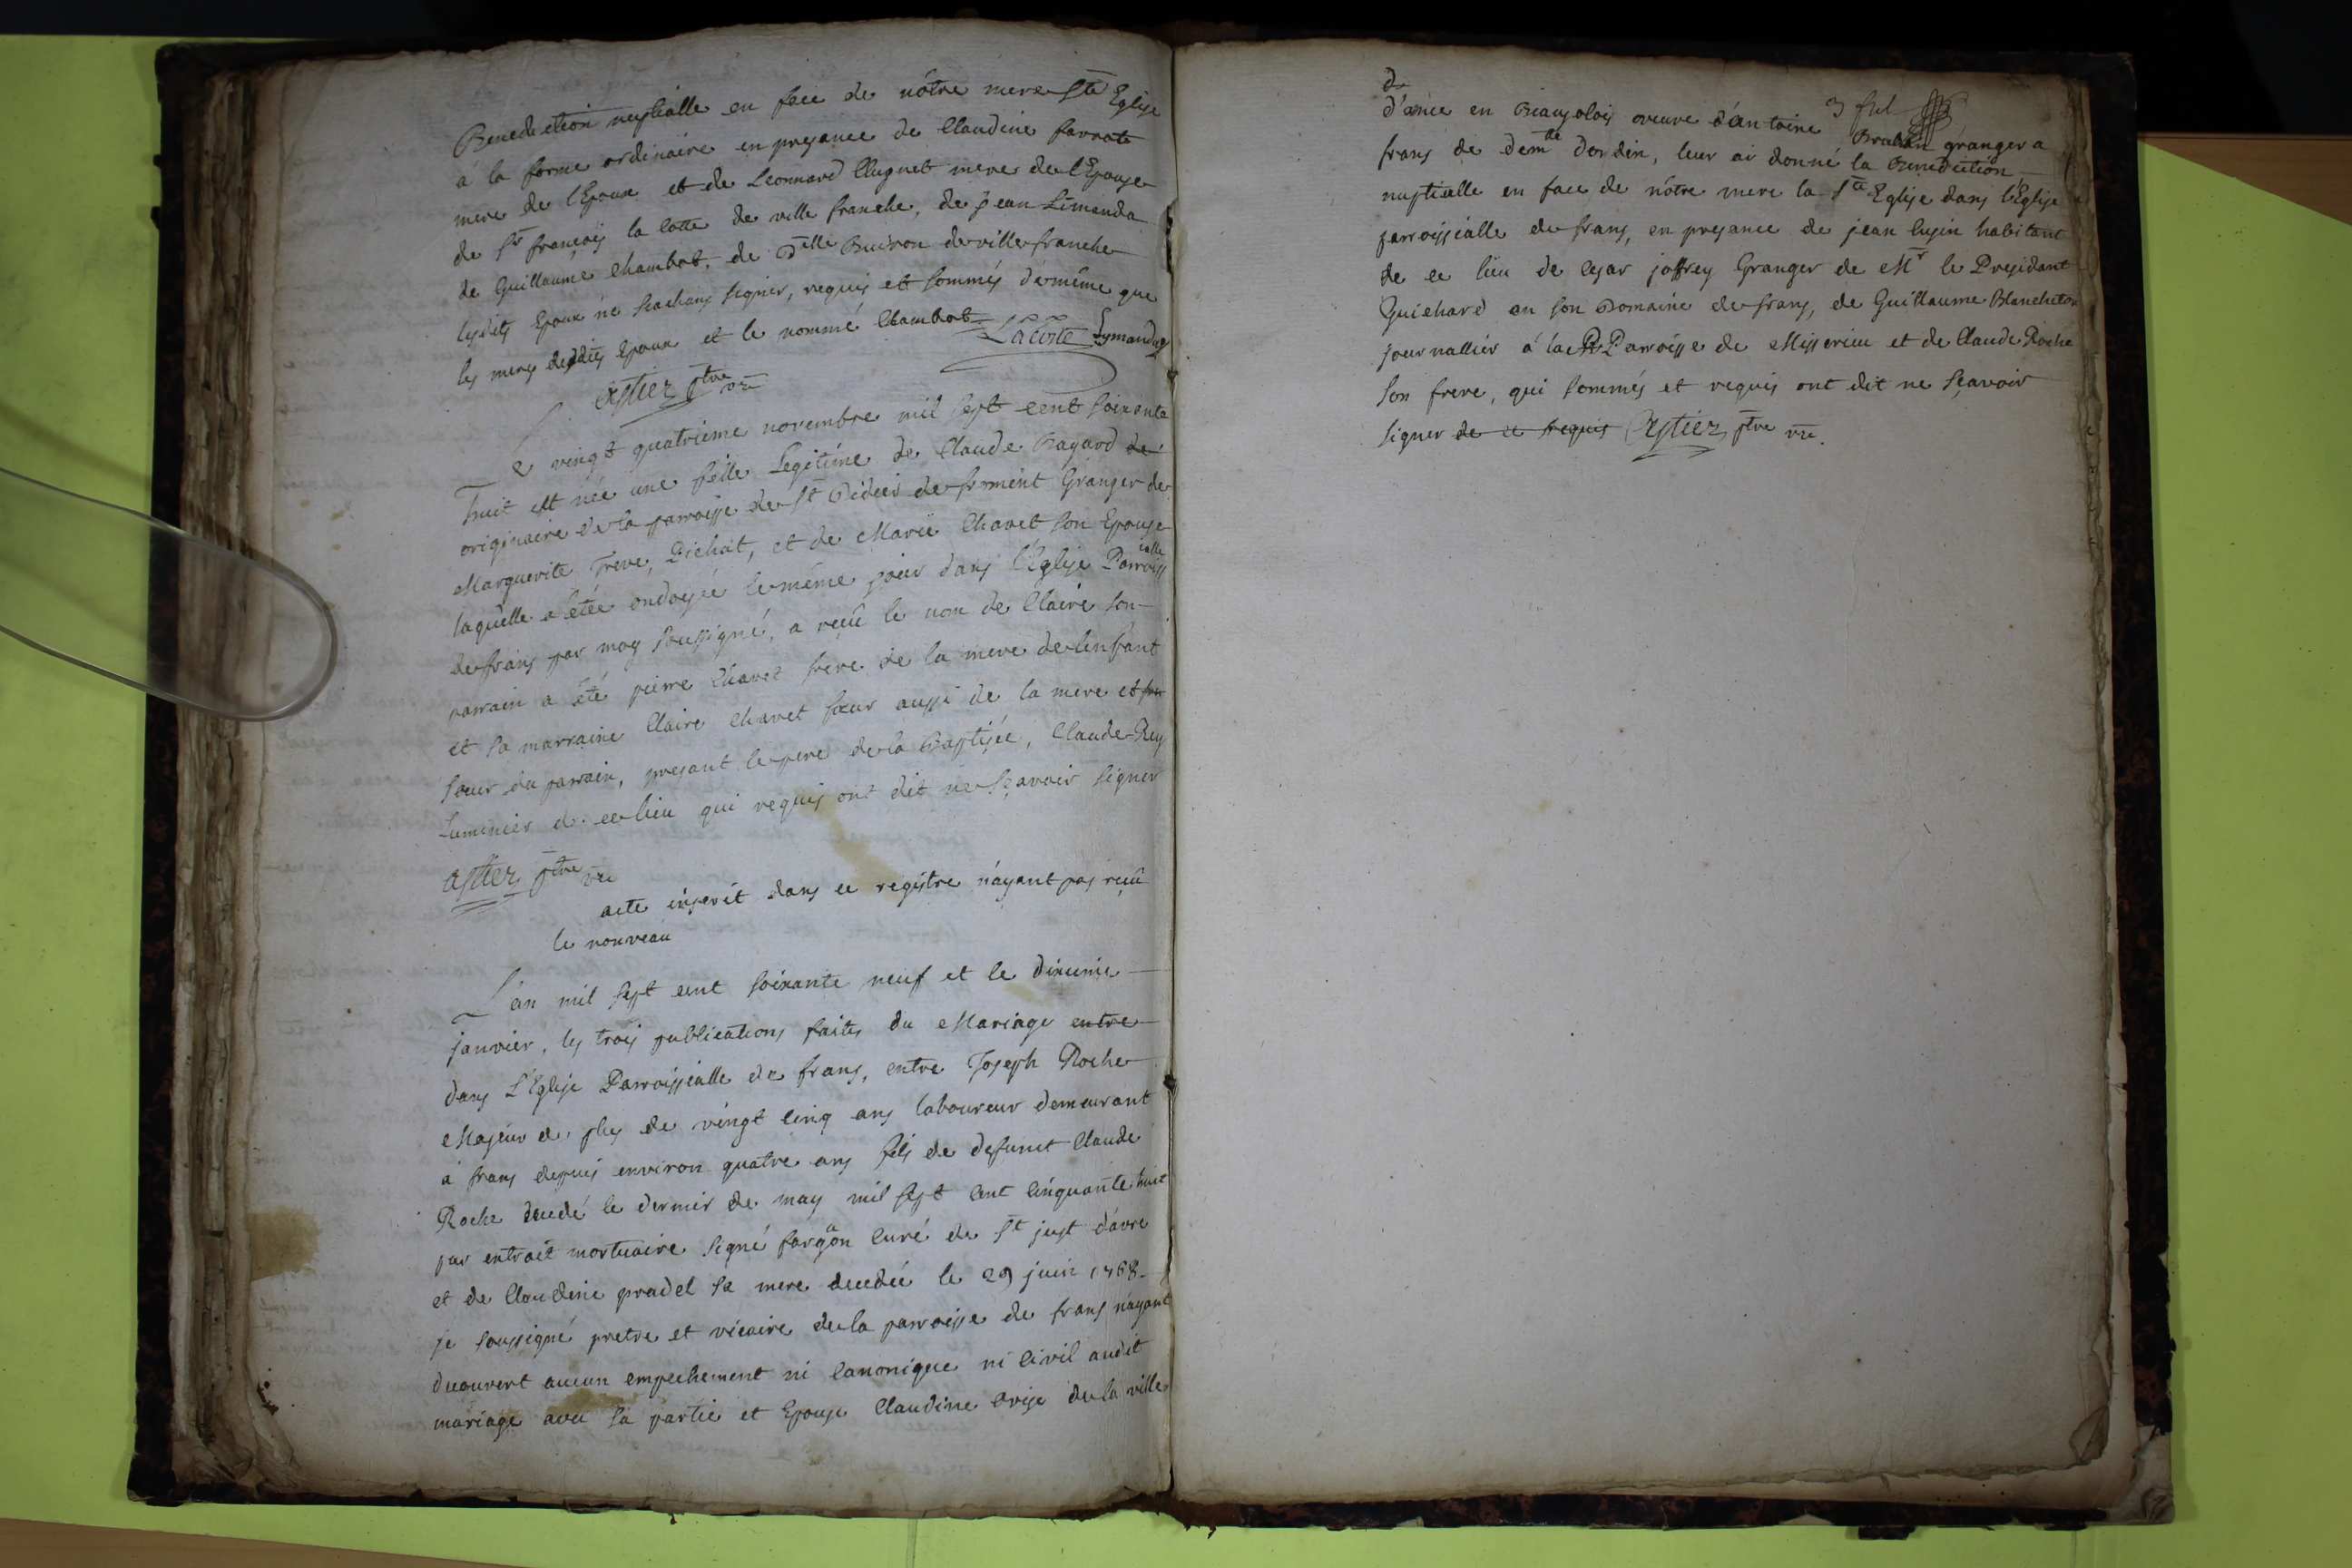 Benediction nuptialle en face de nôtre mere Ste Eglise
à la forme ordinaire en presance de Claudine farrate
mere de l'Epoux et de Leonnard Cluguet mere de l'Epouse
de Sr françois la cotte de ville franche, de jean Limanda
de Guillaume Chambat, de Dlle Buiron de ville franche
lesdits Epoux ne scachans signer, requis et sommés de même que
les meres desdits Epoux et le nommé Chambat Lacotte Lymandas
Astier ptre vre
Le vingt quatrieme novembre mil sept cent soixante
huit est née une fille Legitime de Claude Bayard de
originaire de la parroisse de St Didier de forment Granger de
Marguerite Treve, Dichat, et de Marie Chavet son Epouse
laquelle a été ondoyée le même jour dans l'Eglise Parroissialle
de frans par moy soussigné, a reçû le nom de Claire son
parrain a été pierre Chavet frere de la mere de l'enfant
et sa marraine Claire Chavet sœur aussi de la mere et
sœur du parrain, presant le pere de la Baptisée, Claude Rey
Luminier de ce lieu qui requis ont dit ne sçavoir signer
Astier ptre vre
acte inserit dans ce registre n'ayant pas reçû
le nouveau
L'an mil sept cent soixante neuf et le dixieme
janvier, les trois publications faites du Mariage entre
dans L'Eglise Parroissialle de frans, entre Joseph Roche
Majeur de plus de vingt cinq ans laboureur demeurant
à frans depuis environ quatre ans fils de defunct Claude
Roche decedé le dernier de may mil sept cent cinquante huit
par extrait mortuaire signé fargôn curé de St just d'avre
et de Claudine pradel sa mere decedée le 29 juin 1768
je soussigné pretre et vicaire de la parroisse de frans n'ayant
decouvert aucun empechement ni canonique ni civil audit
mariage avec sa partie et Epouse Claudine Orise de la ville
3 ful
de
d'ance en Beaujolois veuve d'antoine Brechan granger a
frans de Demlle Dordin, leur ai donné la Benediction
nuptialle en face de nôtre mere la Ste Eglise dans l'Eglise
parroissialle de frans, en presance de jean lusin habitant
de ce lieu de cesar joffrey Granger de Mr le Presidant
Guichard en son Domaine de frans, de Guillaume Blancheton
journallier à la Parroisse de Misserieu et de Claude Roche
son frere, qui sommés et requis ont dit ne sçavoir
signer de ce requis Astier ptre vre.